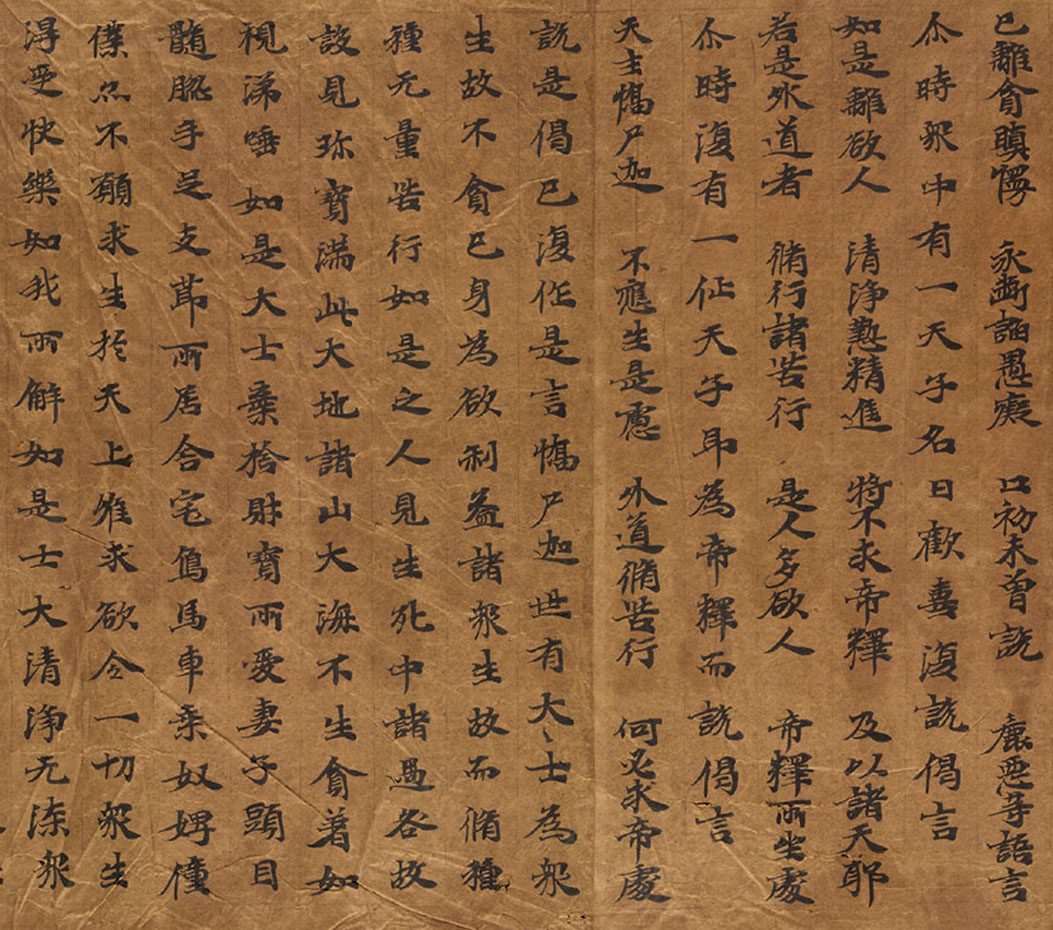 已離貪瞋慢 永斷諂愚癡 口初未曾說 麁惡等語言
尒時眾中有一天子名曰歡喜復說偈言
如是離欲人 清淨懃精進 將不求帝釋 及以諸天耶
若是外道者 脩行諸苦行 是人多欲人 帝釋所坐處
尒時復有一仙天子即為帝釋而說偈言
天主憍尸迦 不應生是慮 外道脩苦行 何必求帝處
說是偈已復作是言憍尸迦世有大士為眾
生故不貪己身為欲利益諸眾生故而脩種
種无量苦行如是之人見生死中諸過各故
設見珎寶滿此大地諸山大海不生貪著如
視涕唾如是大士棄捨財寶所愛妻子頭目
髓腦手足支節所居舍宅象馬車乘奴婢僮
僕亦不願求生於天上唯求欲令一切眾生
得受快樂如我所解如是士大清淨无染眾